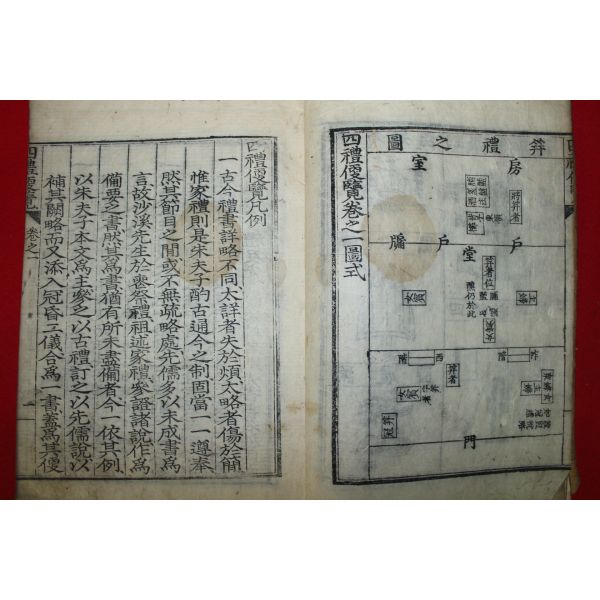 笄禮之圖
房
室
將笄者
戶
戶
牖
堂
笄者位
主
女賓
阼階
西階
笄者
女賓
主
門
四禮便覽卷之一圖式
四禮便覽凡例
一古今禮書詳略不同太詳者失於煩太略者傷於簡
惟家禮則是朱夫子酌古通今之制固當一一遵奉
然其節目之間或不無疏略處先儒多以未成書爲
言故沙溪先生於喪祭禮祖述家禮參證諸說作爲
備要之書然其爲書猶有所未盡備者今一依其例
以朱夫子本文爲主參之以古禮訂之以先儒說以
補其闕略而又添入冠昏二儀合爲一書蓋爲其便
四禮便覽
卷之一